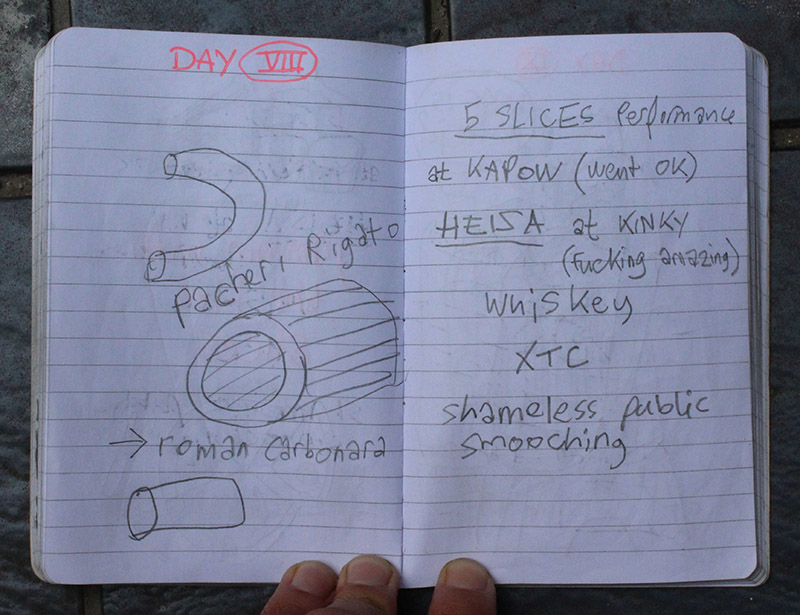 DAY VIII
pacheri Rigato
→ roman carbonara
5 SLICES performance
at KAPOW (went OK)
HEISA at KINKY
(fucking amazing)
whiskey
XTC
shameless public
smooching